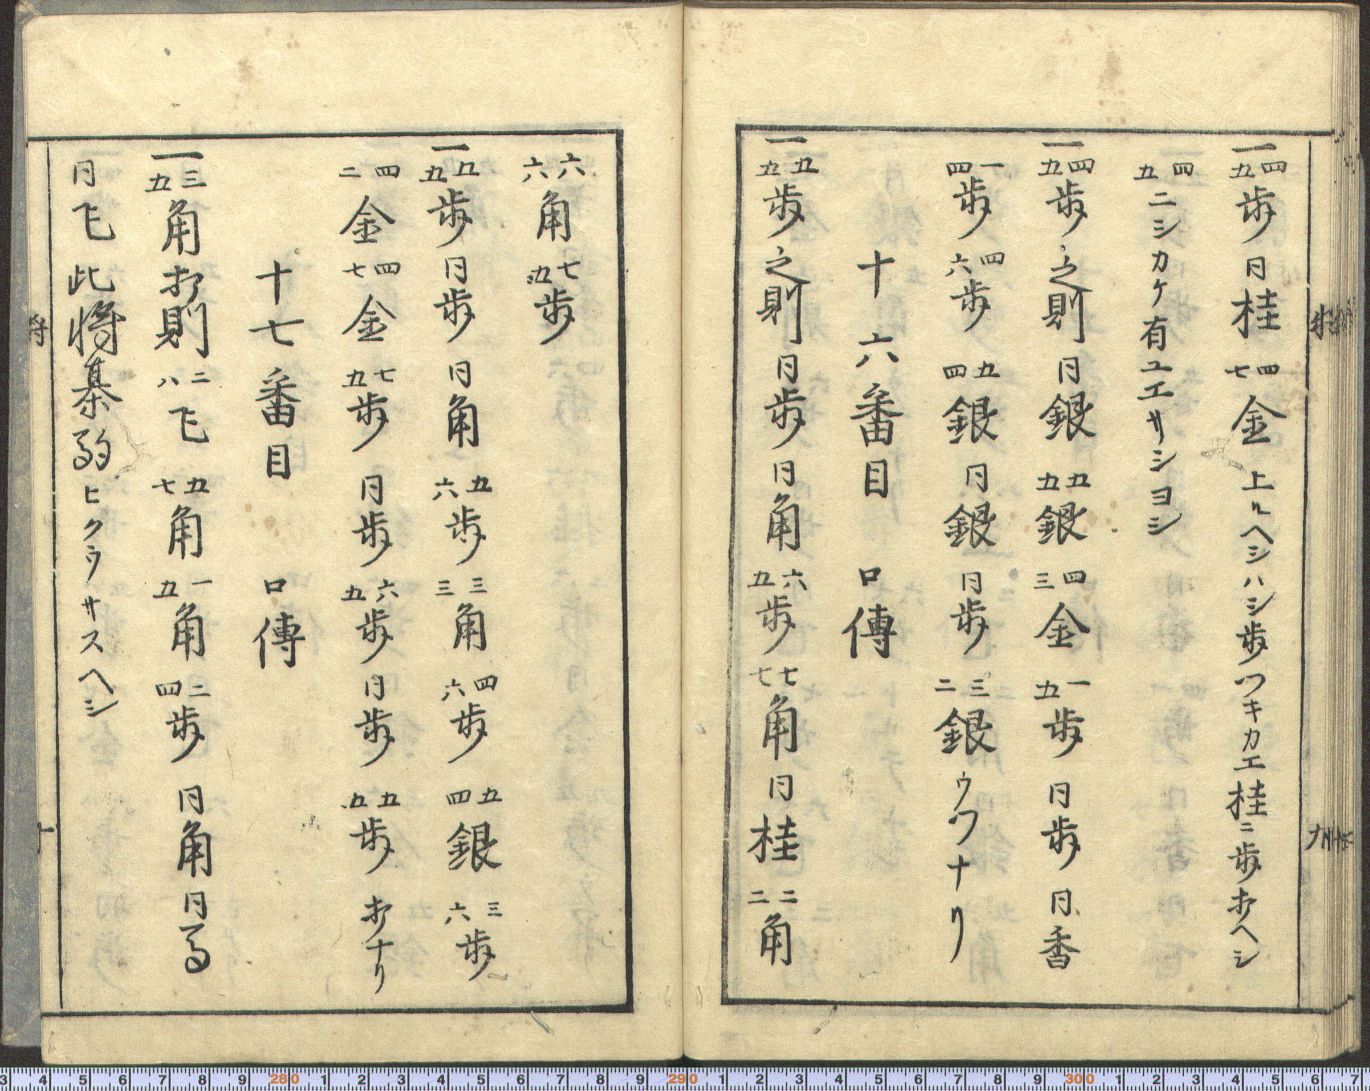 一四五歩同桂四七金上ルヘシハシ歩ツキカエ桂ニ歩打ヘシ
四五ニシカケ有ユエサシヨシ
一四五歩之則同銀五五銀四三金一五歩同歩同香
一四歩四六歩五四銀同銀同歩三二銀ウツナリ
十六番目　口傳
一五五歩之則同歩同角六五歩七七角同桂二二角
六六角七五歩
一五五歩同歩同角五六歩三三角四六歩五四銀三六歩
四二金四七金七五歩同歩六五歩同歩五五歩打ナリ
十七番目　口傳
一三五角打則二八飛五七角一五角二四歩同角同馬
同飛此将棊駒ヒクラサスヘシ